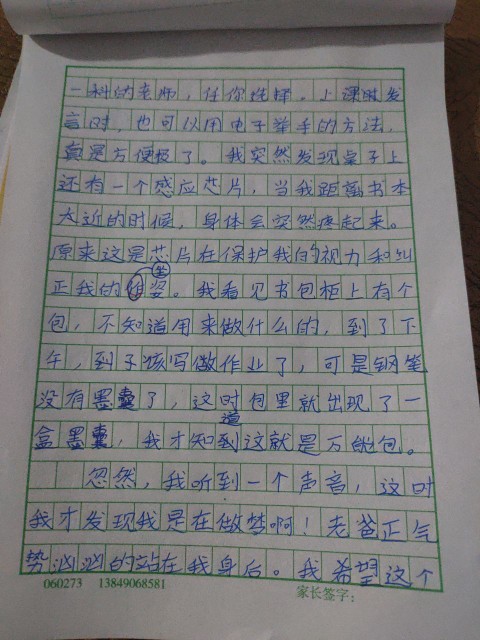 一科的老师，任你选择。上课时发
言时，也可以用电子举手的方法，
真是方便极了。我突然发现桌子上
还有一个感应芯片，当我距离书本
太近的时候，身体会突然疼起来。
原来这是芯片在保护我的视力和纠
正我的坐姿。我看见书包柜上有个
包，不知道用来做什么的，到了下
午，到了该写做作业了，可是钢笔
没有墨囊了，这时包里就出现了一
盒墨囊，我才知道这就是万能包。
忽然，我听到一个声音，这时
我才发现我是在做梦啊！老爸正气
势汹汹的站在我身后。我希望这个
060273 13849068581 家长签字：